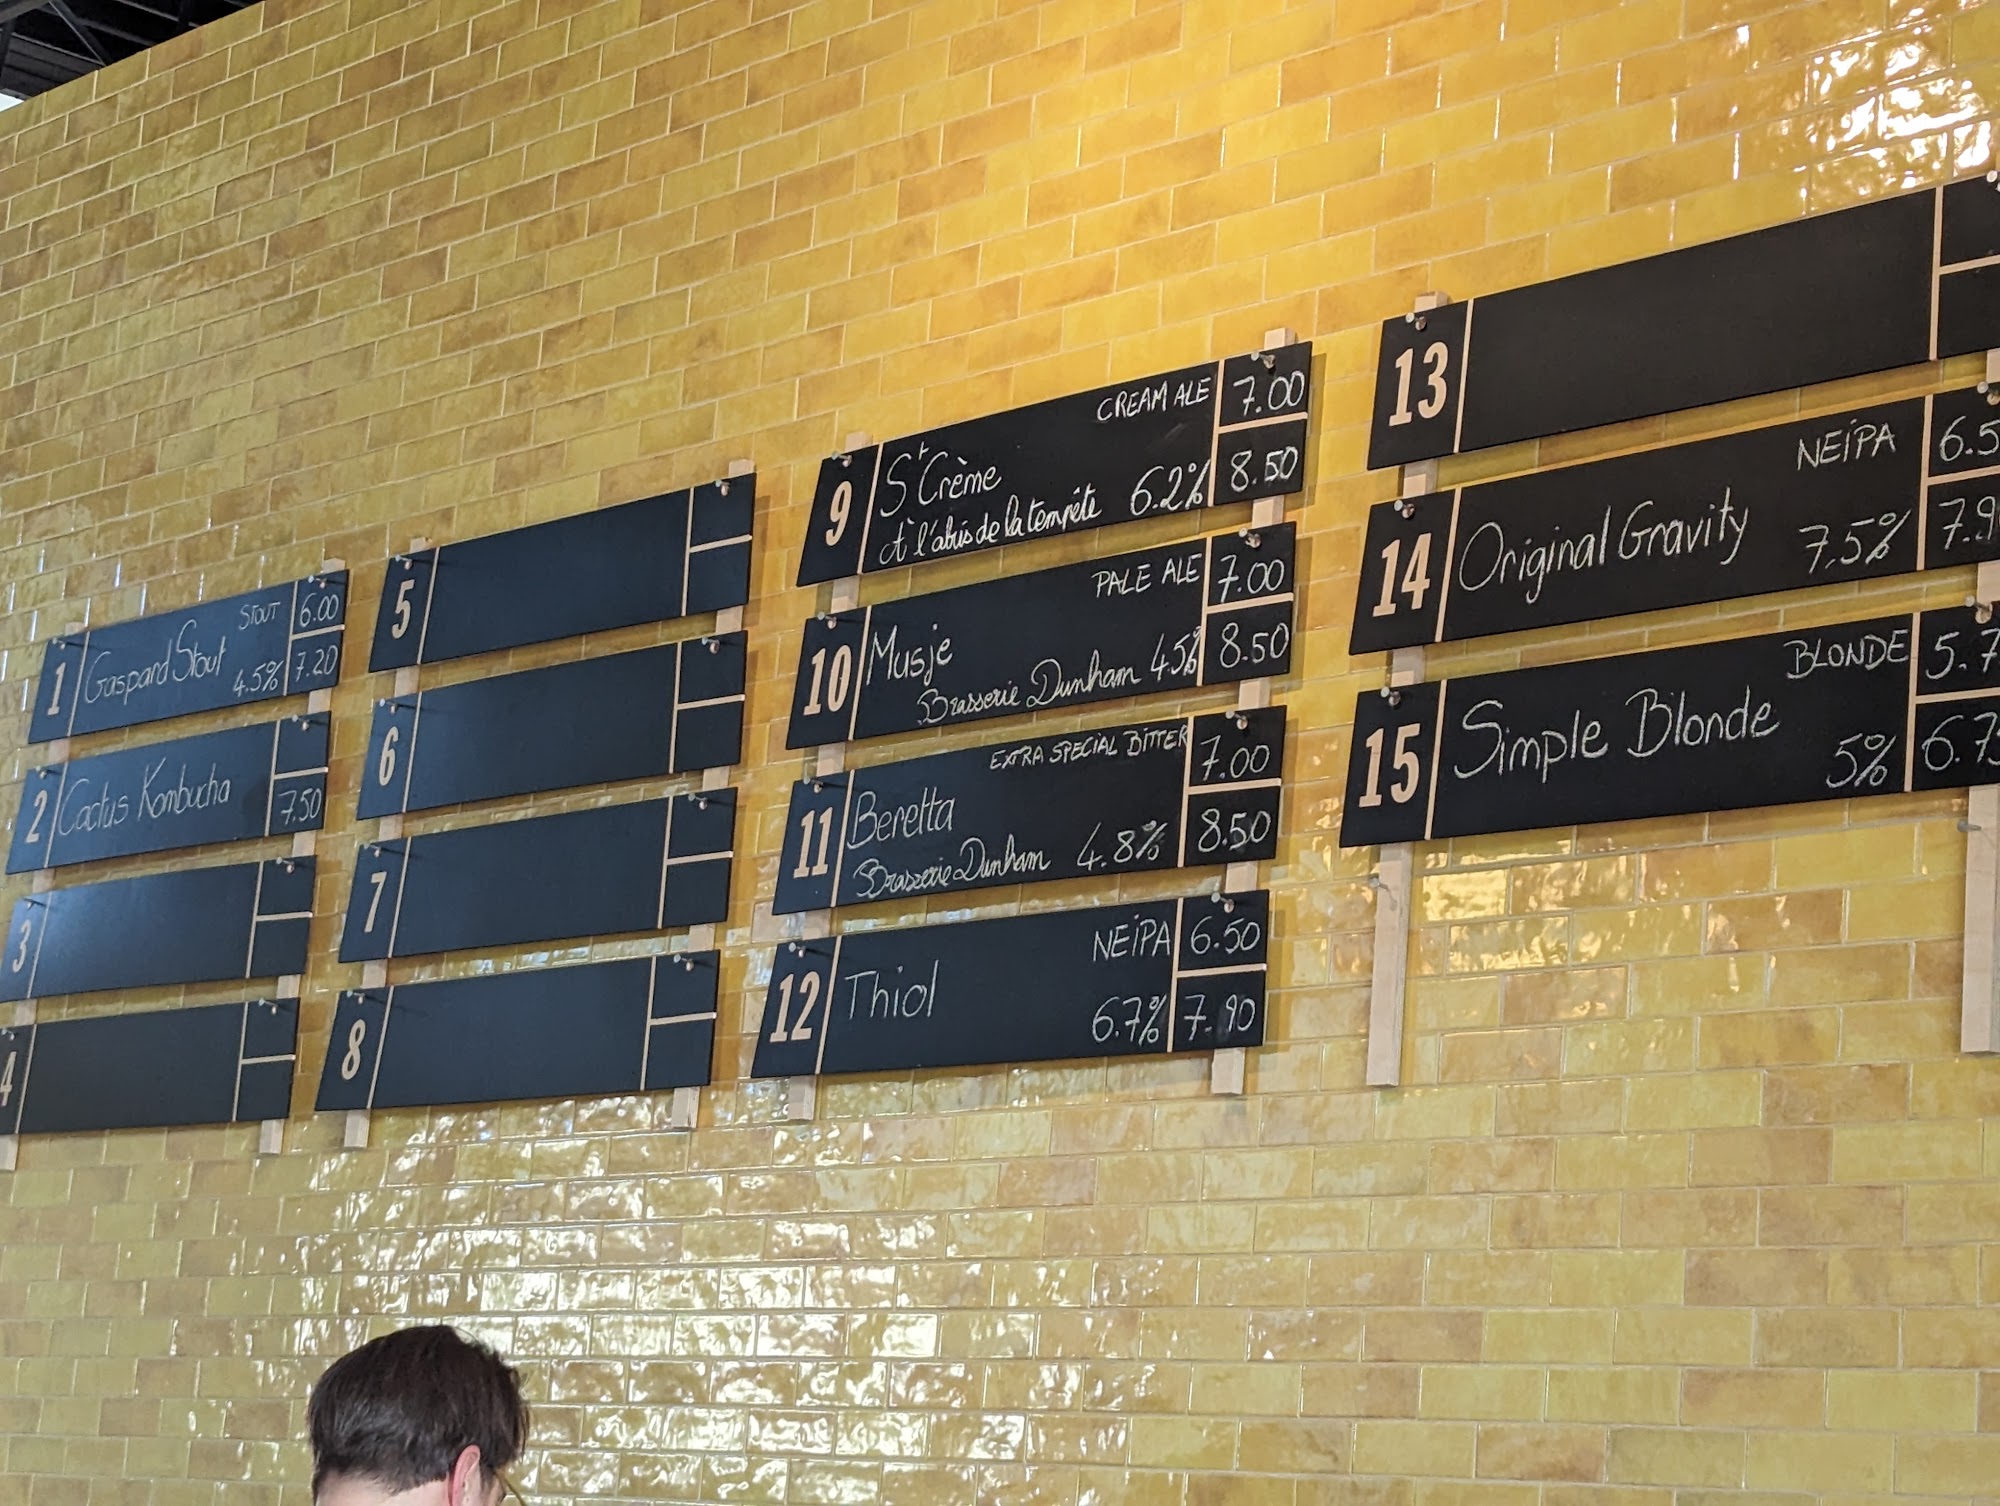 1
STOUT
6.00
Gaspard Stout
4.5%
7.20
2
Cactus Kombucha
7.50
3
4
5
6
7
8
9
CREAM ALE
7.00
St Crème
À l'abris de la tempête 6.2%
8.50
10
PALE ALE
7.00
Musje
Brasserie Dunham 4.5%
8.50
11
EXTRA SPECIAL BITTER
7.00
Beretta
Brasserie Dunham 4.8%
8.50
12
NEIPA
6.50
Thiol
6.7%
7.90
13
14
NEIPA
6.5
Original Gravity
7.5%
7.9
15
BLONDE
5.7
Simple Blonde
5%
6.7